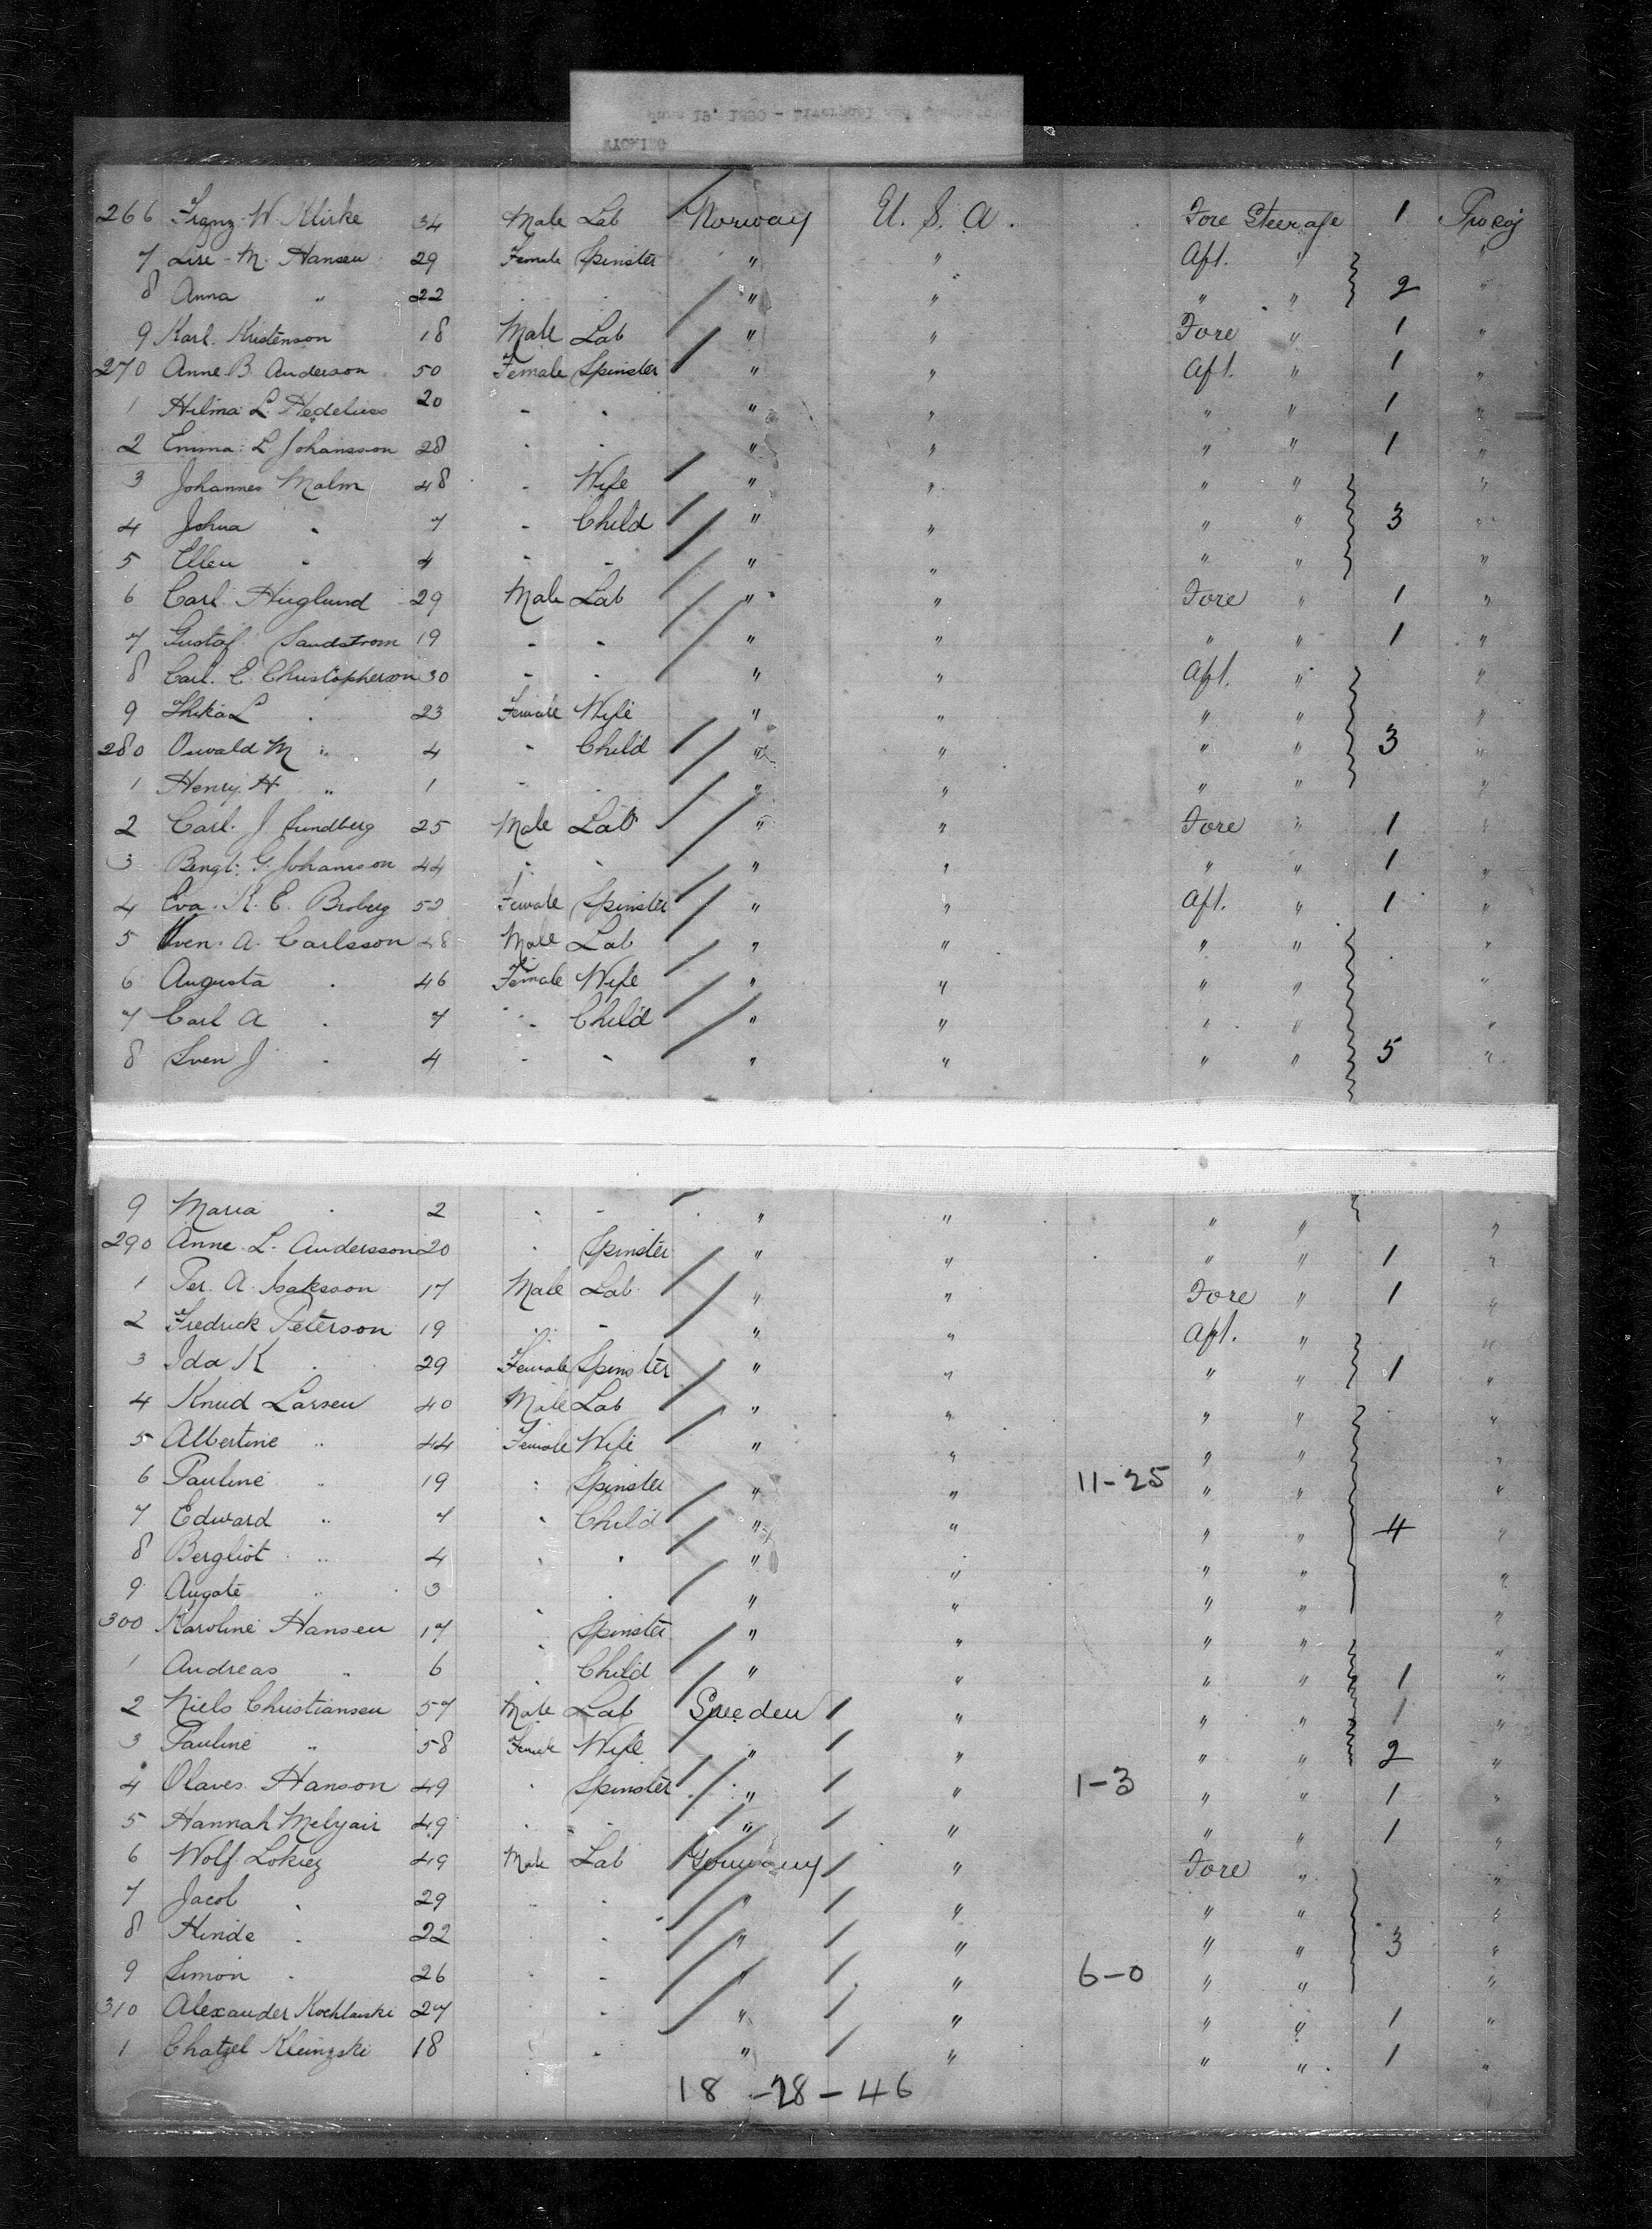 266 Franz W. Klirke 34 Male Lab Norway U. S. A. Fore Steerage 1
7 Lise M. Hansen 29 Female Spinster " " Aft. " "
8 Anna " 22 " " " " 2 "
9 Karl. Kristenson 18 Male Lab " " Fore " 1 "
270 Anne B. Anderson 50 Female Spinster " " Aft. " 1 "
1 Hilma L. Hedelius 20 - - " " " " 1 "
2 Emma L. Johansson 28 - - " " " " 1 "
3 Johannes Malm 48 - Wife " " " " "
4 Johna " 7 - Child " " " " 3 "
5 Ellen " 4 - - " " " " "
6 Carl Huglund 29 Male Lab " " Fore " 1 "
7 Gustaf Sandstrom 19 - - " " " " 1 "
8 Carl. E. Christopherson 30 - - " " Aft. " "
9 L " 23 Female Wife " " " " "
280 Oswald M " 4 - Child " " " " 3 "
1 Henry H " 1 - - " " " " "
2 Carl. J. Sundberg 25 Male Lab " " Fore " 1 "
3 Bengt. G. Johansson 44 - - " " " " 1 "
4 Eva. K. E. Broberg 52 Female Spinster " " Aft. " 1 "
5 Sven. A. Carlsson 48 Male Lab " " " " "
6 Augusta " 46 Female Wife " " " " "
7 Carl A " 7 - Child " " " " "
8 Sven J " 4 - - " " " " 5 "
9 Maria " 2 - - " " " " "
290 Anne L. Andersson 20 - Spinster " " " " 1 "
1 Per. A. Isaksson 17 Male Lab " " Fore " 1 "
2 Fredrick Peterson 19 - - " " Aft. " "
3 Ida K " 29 Female Spinster " " " " 1 "
4 Knud Larsen 40 Male Lab " " " " "
5 Albertine " 44 Female Wife " " " " "
6 Pauline " 19 " Spinster " " 11-25 " " "
7 Edward " 7 " Child " " " " 4 "
8 Bergliot " 4 " " " " " " "
9 Augate " 3 " " " " " "
300 Karoline Hansen 17 " Spinster " " " " "
1 Andreas " 6 " Child " " " " 1 "
2 Niels Christiansen 57 Male Lab Sweden " " " 1 "
3 Pauline " 58 Female Wife " " " " 2 "
4 Olaves Hanson 49 " Spinster " " 1-3 " " 1 "
5 Hannah Melyair 49 " " " " " " 1 "
6 Wolf Lokiez 49 Male Lab Germany " Fore " "
7 Jacob " 29 - - " " " " "
8 Hinde " 22 - - " " " " 3 "
9 Simon " 26 - - " " 6-0 " " "
310 Alexander Kochlanski 27 - - " " " " 1 "
1 Chatzel Kleinzski 18 - - " " " " 1 "
18 - 28 - 46